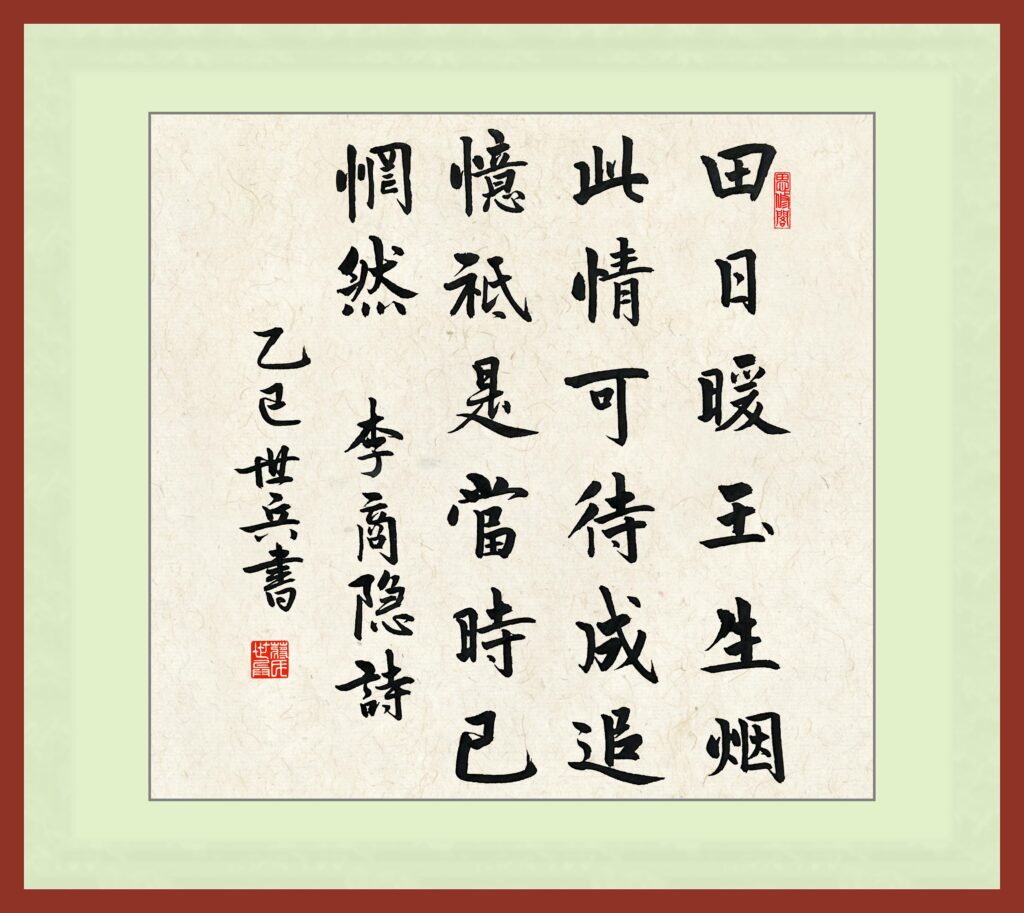 田日暖玉生烟
此情可待成追
憶祗是當時已
惘然 李商隐詩
乙巳世兵書